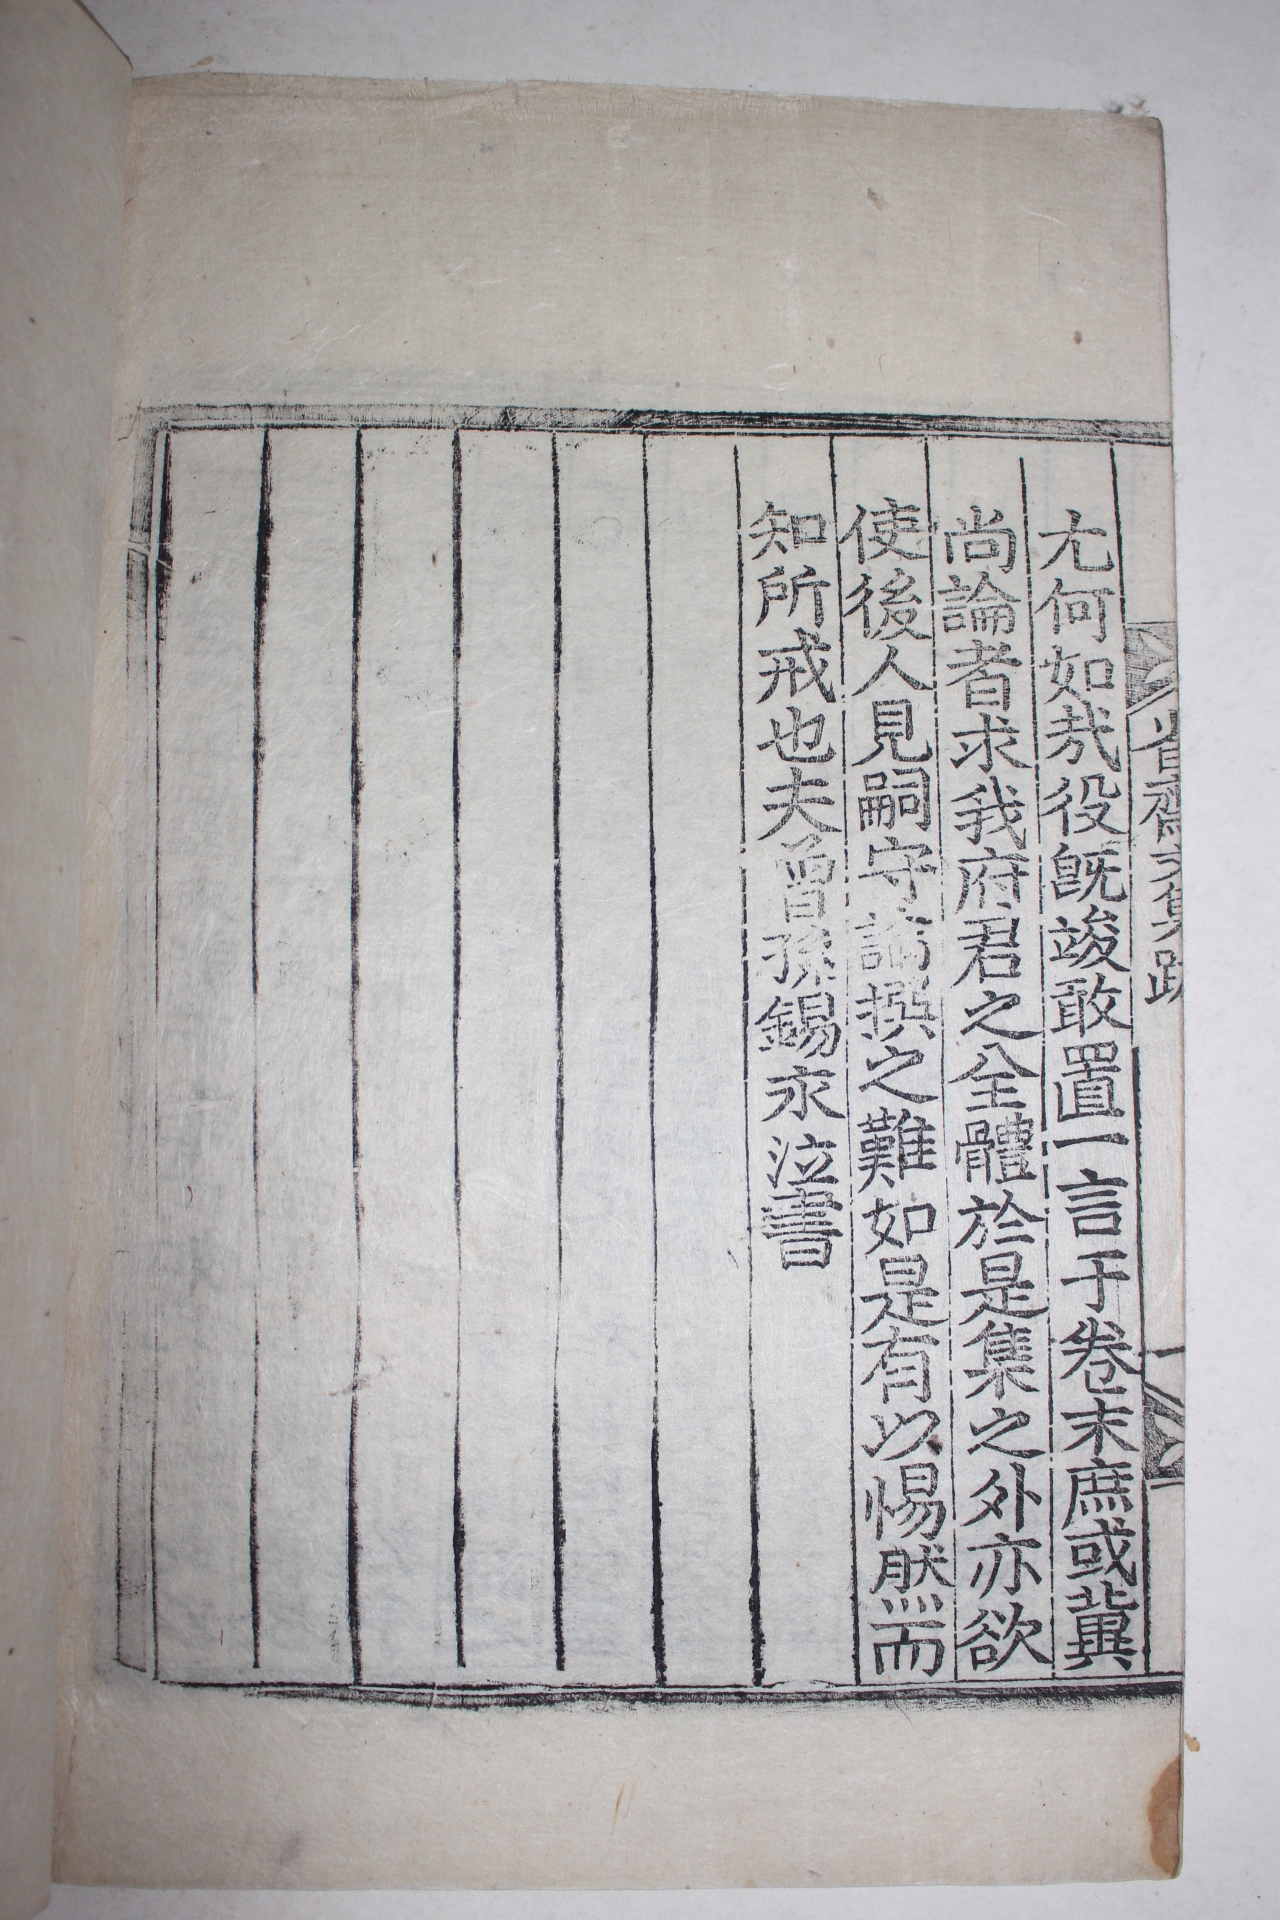 省齋文集跋 一
尤何如哉役旣竣敢置一言于卷末庶或冀
尚論者求我府君之全體於是集之外亦欲
使後人見嗣守論撰之難如是有以惕然而
知所戒也夫曾孫錫永泣書